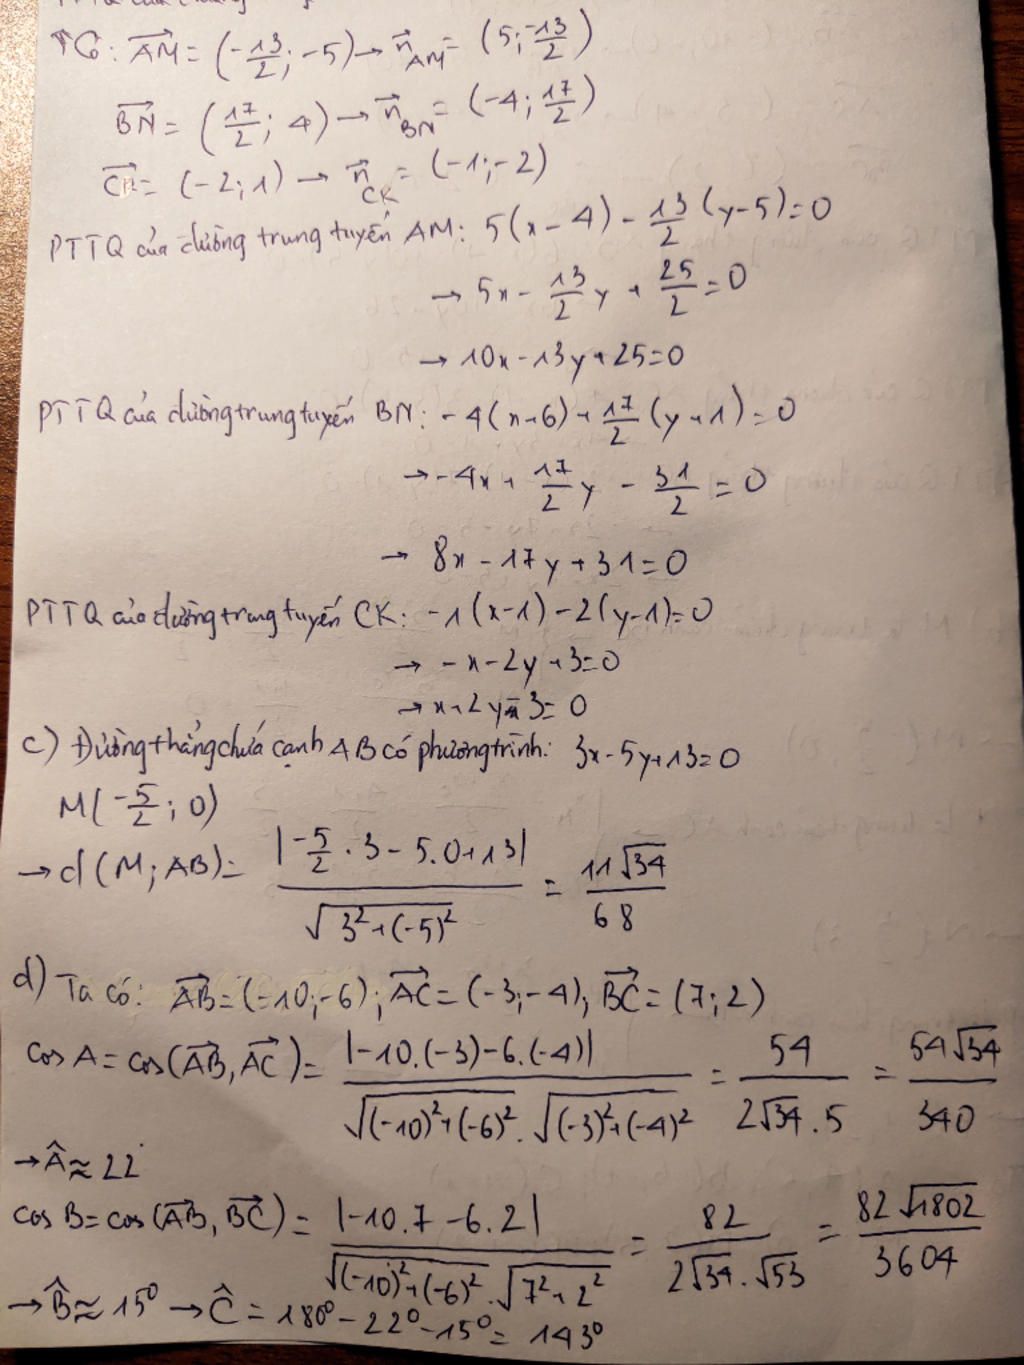 TC: AM = (-13/2; -5) → n_AM = (5; -13/2)
BN = (17/2; 4) → n_BN = (-4; 17/2)
CK = (-2; 1) → n_CK = (-1; -2)
PTTQ của đường trung tuyến AM: 5(x-4) - 13/2 (y-5) = 0
→ 5x - 13/2 y + 25/2 = 0
→ 10x - 13y + 25 = 0
PTTQ của đường trung tuyến BN: -4(x+6) + 17/2 (y+1) = 0
→ -4x + 17/2 y - 31/2 = 0
→ 8x - 17y + 31 = 0
PTTQ của đường trung tuyến CK: -1(x-1) - 2(y-1) = 0
→ -x - 2y + 3 = 0
→ x + 2y - 3 = 0
c) Đường thẳng chứa cạnh AB có phương trình: 3x - 5y + 13 = 0
M(-5/2; 0)
→ d(M; AB) = |-5/2 . 3 - 5.0 + 13| / √(3² + (-5)²) = 11√34 / 68
d) Ta có: AB = (-10; -6); AC = (-3; -4); BC = (7; 2)
cos A = cos(AB, AC) = |-10.(-3) - 6.(-4)| / √((-10)² + (-6)²) . √((-3)² + (-4)²) = 54 / 2√34 . 5 = 54√34 / 340
→ Â ≈ 22
cos B = cos(AB, BC) = |-10.7 - 6.2| / √((-10)² + (-6)²) . √(7² + 2²) = 82 / 2√34 . √53 = 82√1802 / 3604
→ B̂ ≈ 15° → Ĉ = 180° - 22° - 15° = 143°